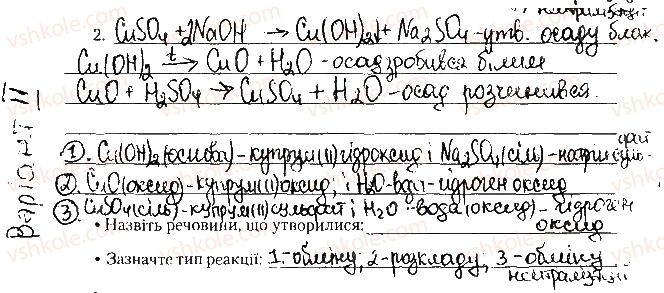 2. CuSO4 + 2NaOH → Cu(OH)2↓ + Na2SO4 - утв. осаду блак.
Cu(OH)2 →t CuO + H2O - осад зробився білим
CuO + H2SO4 → CuSO4 + H2O - осад розчинився.
Варіант II
1. Cu(OH)2 (основа) - купрум(II) гідроксид і Na2SO4 (сіль) - натрій сульфат
2. CuO (оксид) - купрум(II) оксид; і H2O - гідроген оксид
3. CuSO4 (сіль) - купрум(II) сульфат і H2O - вода (оксид) - гідроген оксид
• Назвіть речовини, що утворилися:
• Зазначте тип реакції: 1. - обміну, 2 - розкладу, 3 - обміну
vshkole.com